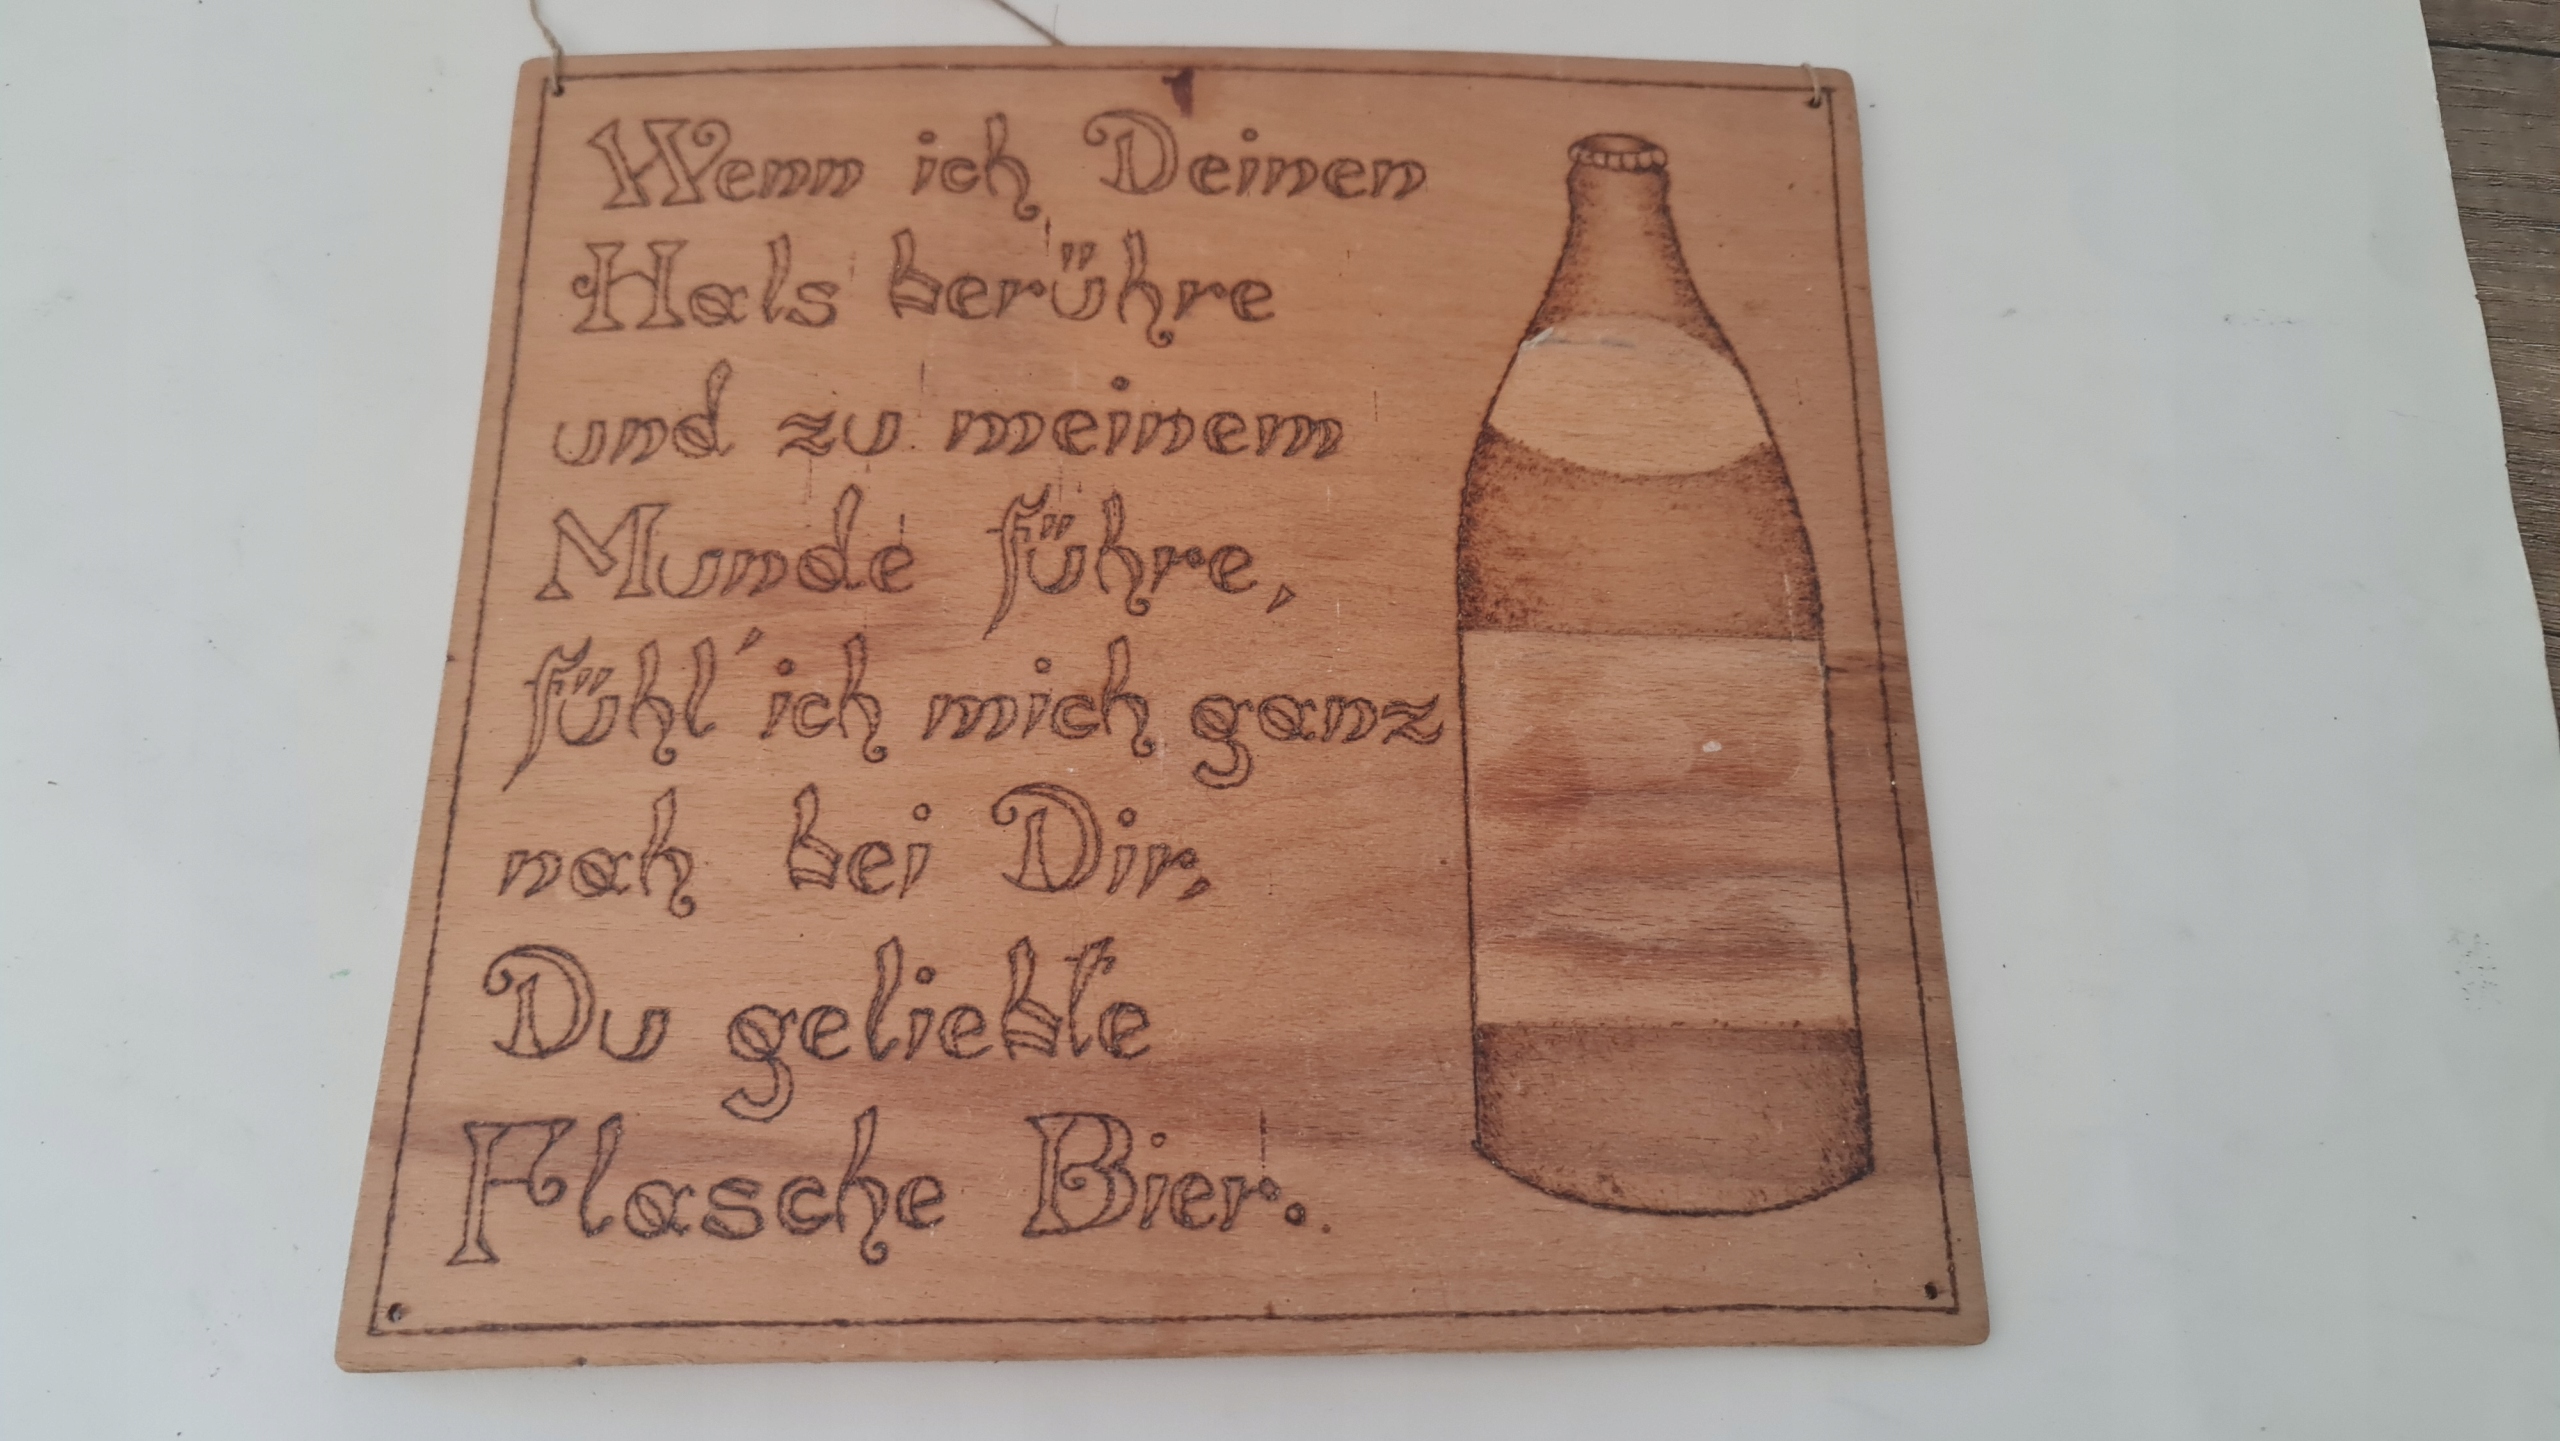 Wenn ich Deinen
Hals berühre
und zu meinem
Munde führe,
fühl´ich mich ganz
nah bei Dir,
Du geliebte
Flasche Bier.